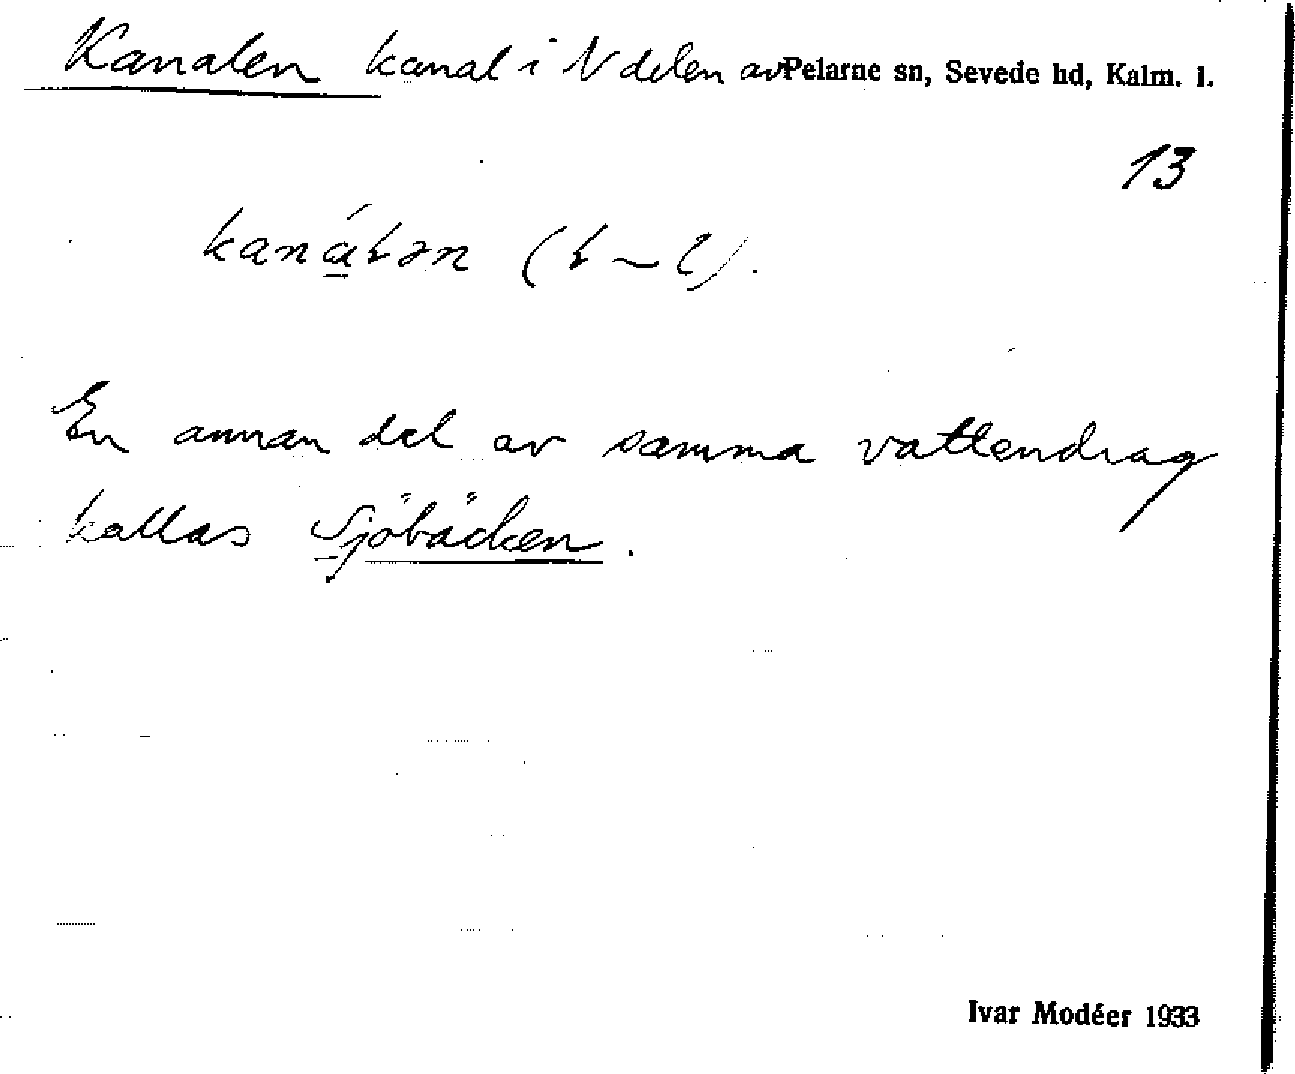 Kanalen kanal i N delen av Pelarne sn, Sevede hd, Kalm. l.
13
En annan del av samma vattendrag
kallas Sjöbäcken.
Ivar Modéer 1933